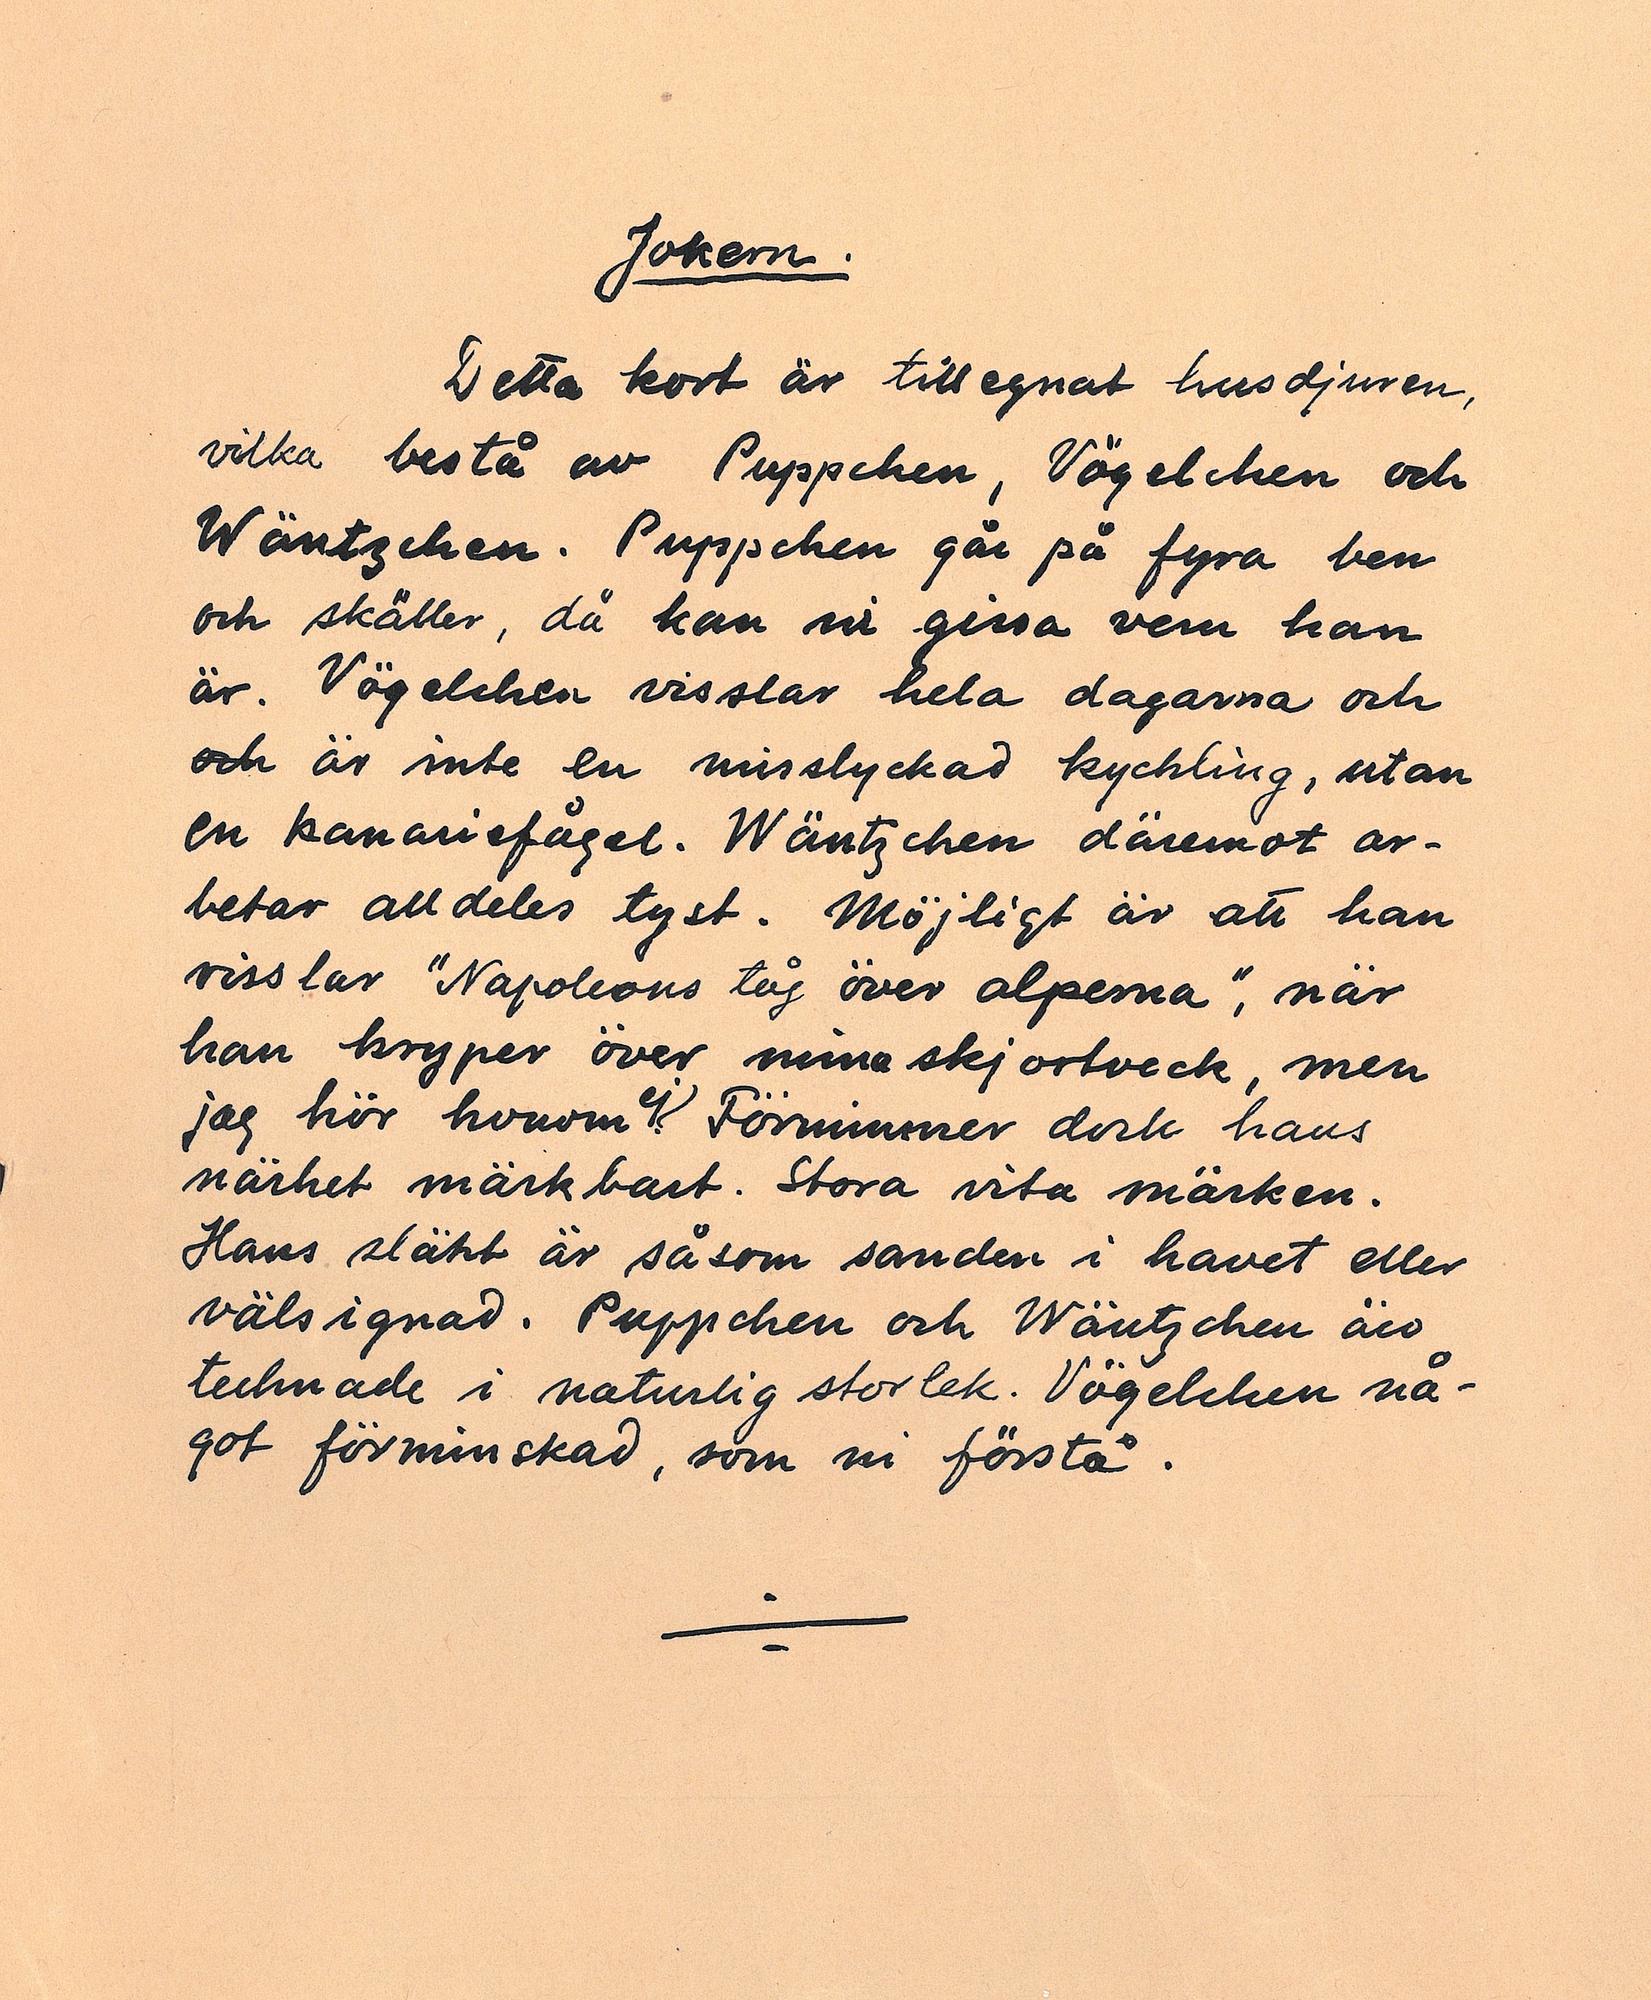 Jokern.
Detta kort är tillegnat husdjuren,
vilka bestå av Puppchen, Vögelchen och
Wäntzchen. Puppchen går på fyra ben
och skäller, då kan ni gissa vem han
är. Vögelchen visslar hela dagarna och
och är inte en misslyckad kychling, utan
en kanariefågel. Wäntzchen däremot ar-
betar alldeles tyst. Möjligt är att han
visslar "Napoleons tåg över alperna", när
han kryper över mina skjortveck, men
jag hör honom ej. Förnimmer dock hans
närhet märkbart. Stora vita märken.
Hans släkt är såsom sanden i havet eller
välsignad. Puppchen och Wäntzchen äro
tecknade i naturlig storlek. Vögelchen nå-
got förminskad, som ni förstå.